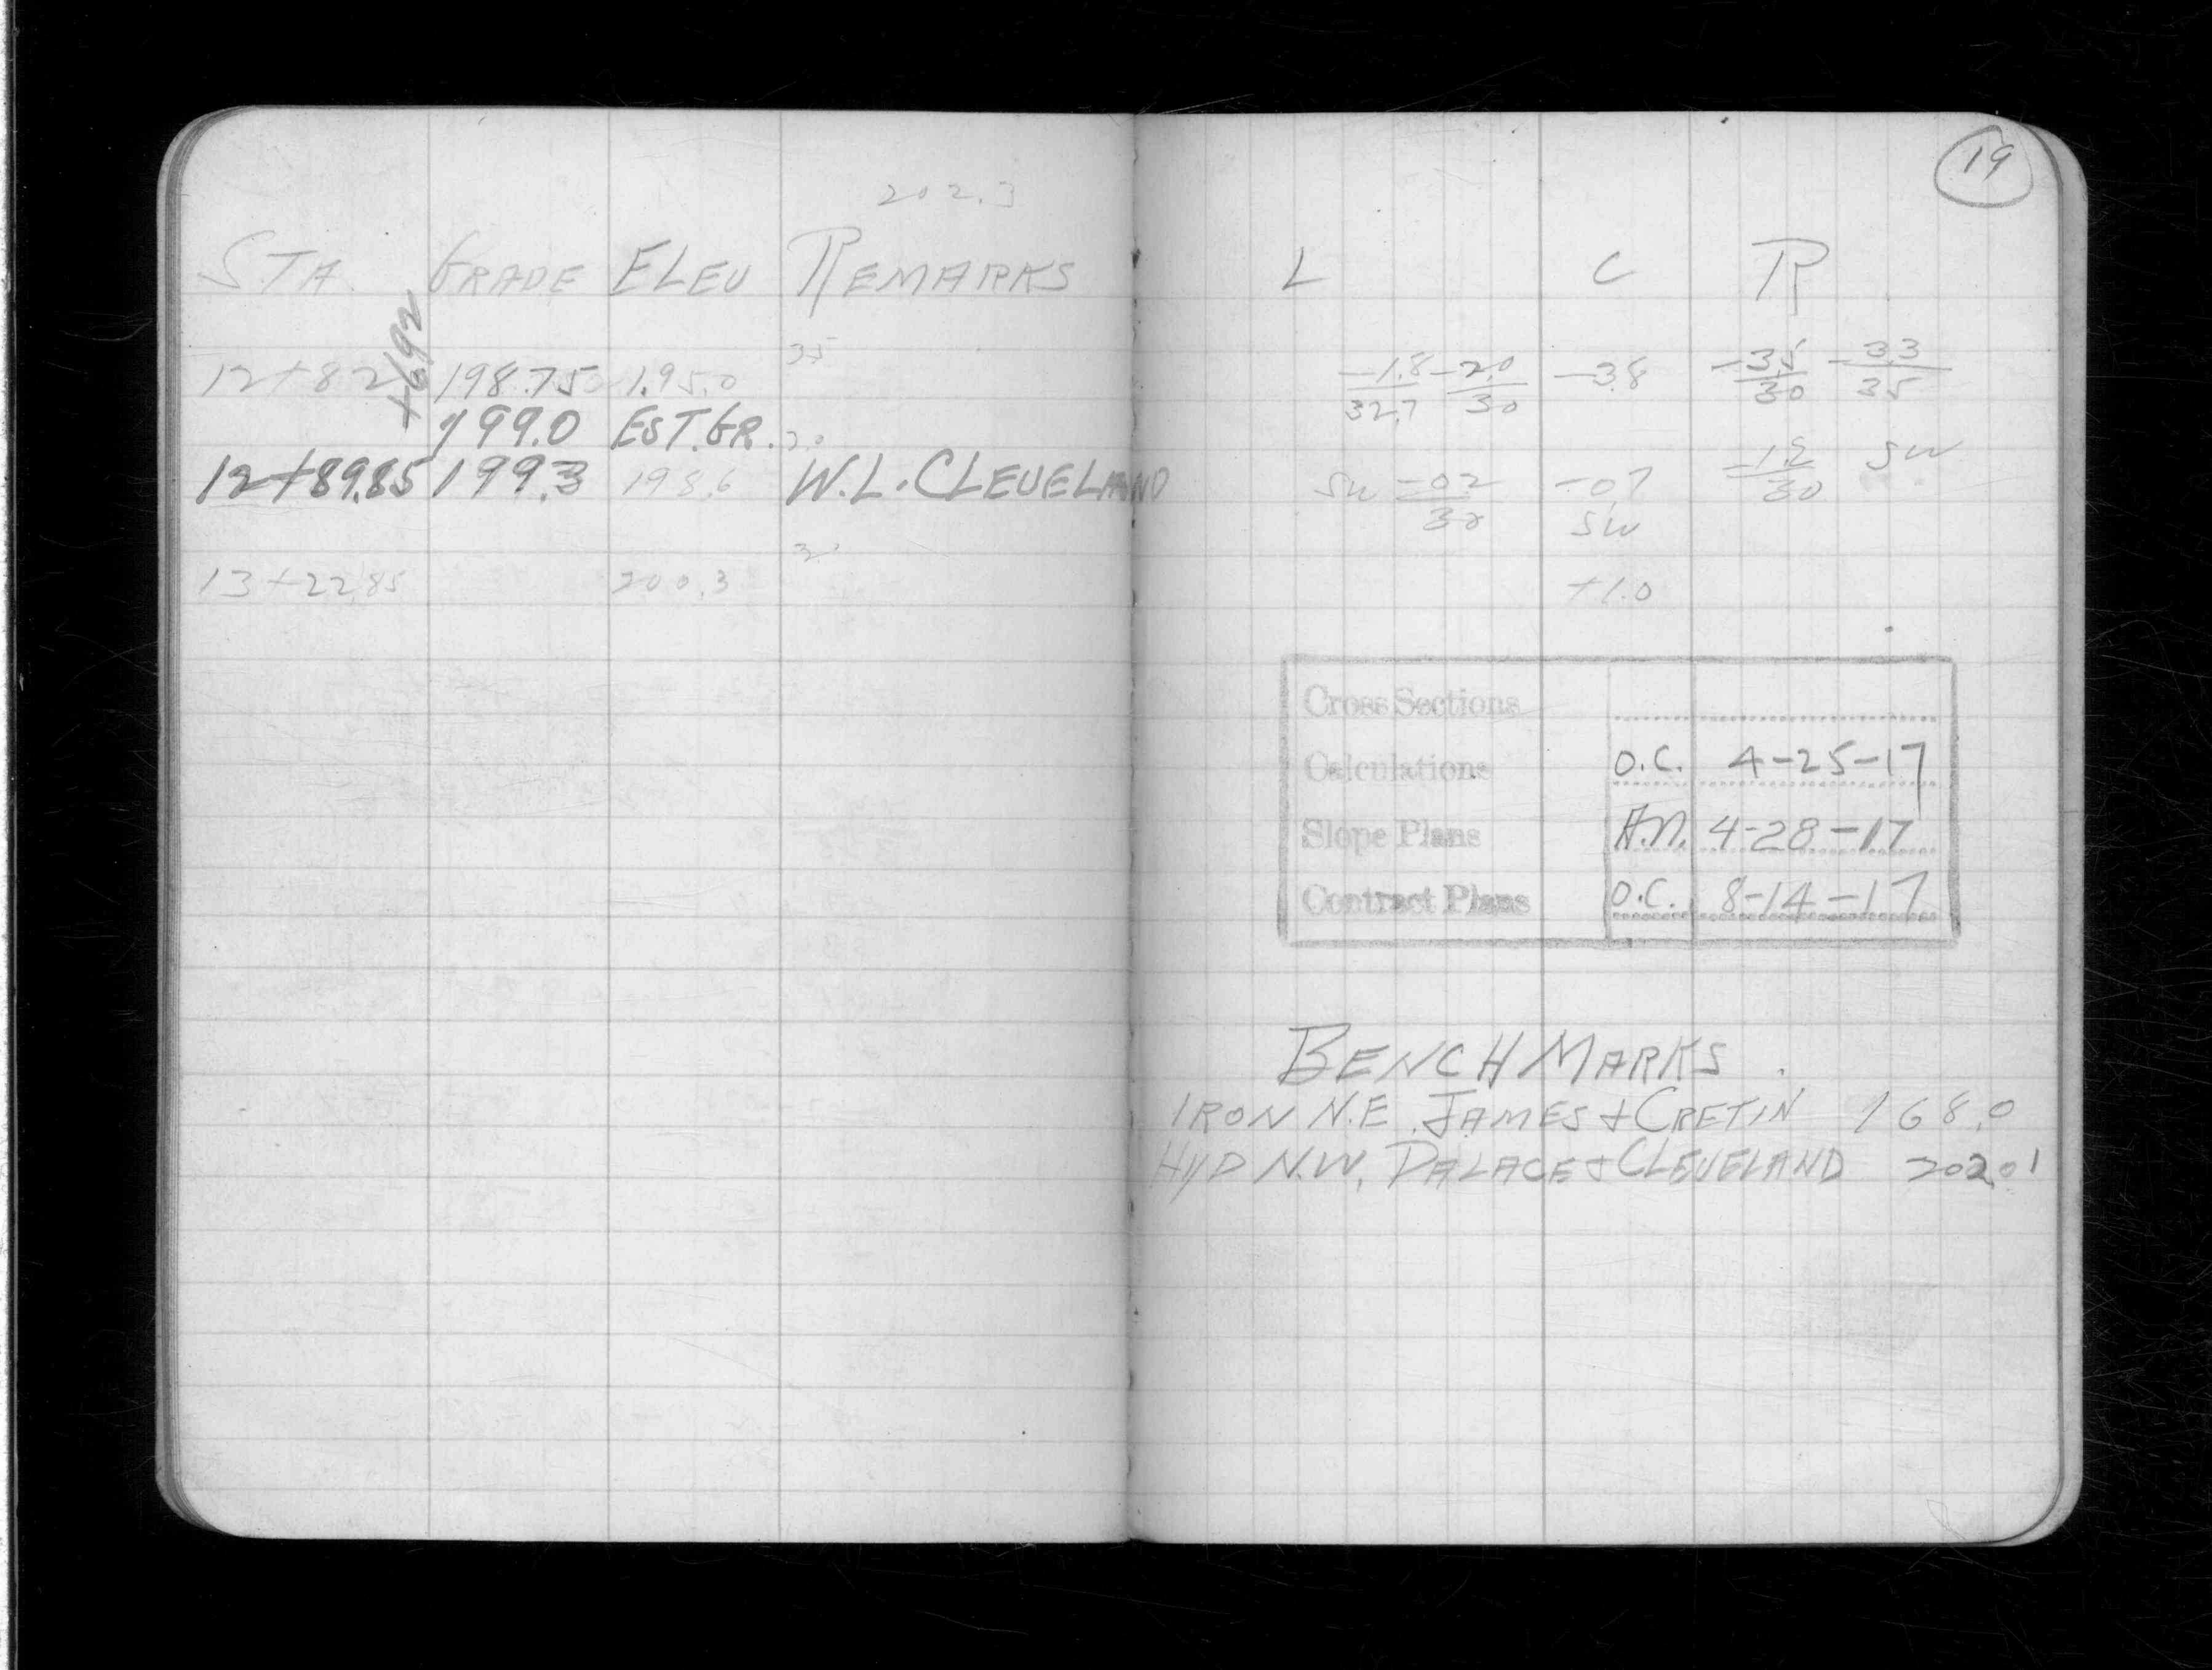 202.3
STA. GRADE ELEV REMARKS
35
12+82 +6.92 198.75 195.0
199.0 EST. GR.
12+89.85 199.3 198.6 W.L. CLEVELAND
13+22.85 200.3
19
L C R
-1.8 -2.0 -3.8 -3.5 -3.3
32.7 30 30 35
SW -0.2 -0.7 -1.2 SW
30 SW 30
+1.0
Cross Sections
Calculations O.C. 4-25-17
Slope Plans A.N. 4-28-17
Contract Plans O.C. 8-14-17
BENCH MARKS
IRON N.E. JAMES & CRETIN 168.0
HYD N.W. PALACE & CLEVELAND